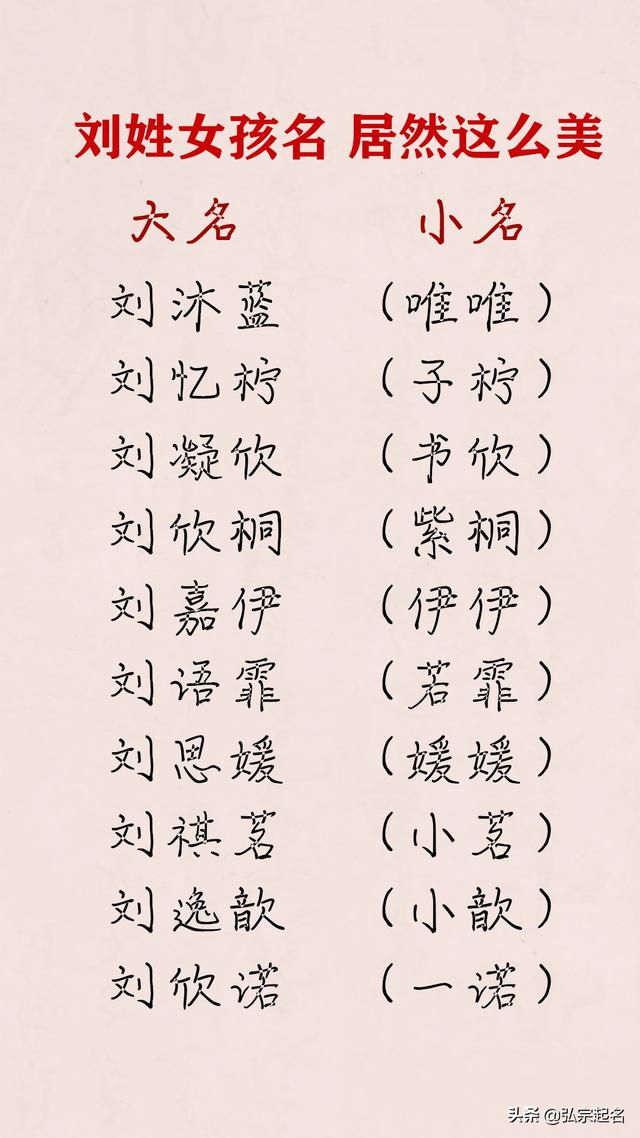 刘姓女孩名 居然这么美
大名 小名
刘沐蓝 （唯唯）
刘忆柠 （子柠）
刘凝欣 （书欣）
刘欣桐 （紫桐）
刘嘉伊 （伊伊）
刘语霏 （若霏）
刘思媛 （媛媛）
刘祺茗 （小茗）
刘逸歆 （小歆）
刘欣诺 （一诺）
头条 @弘宗起名